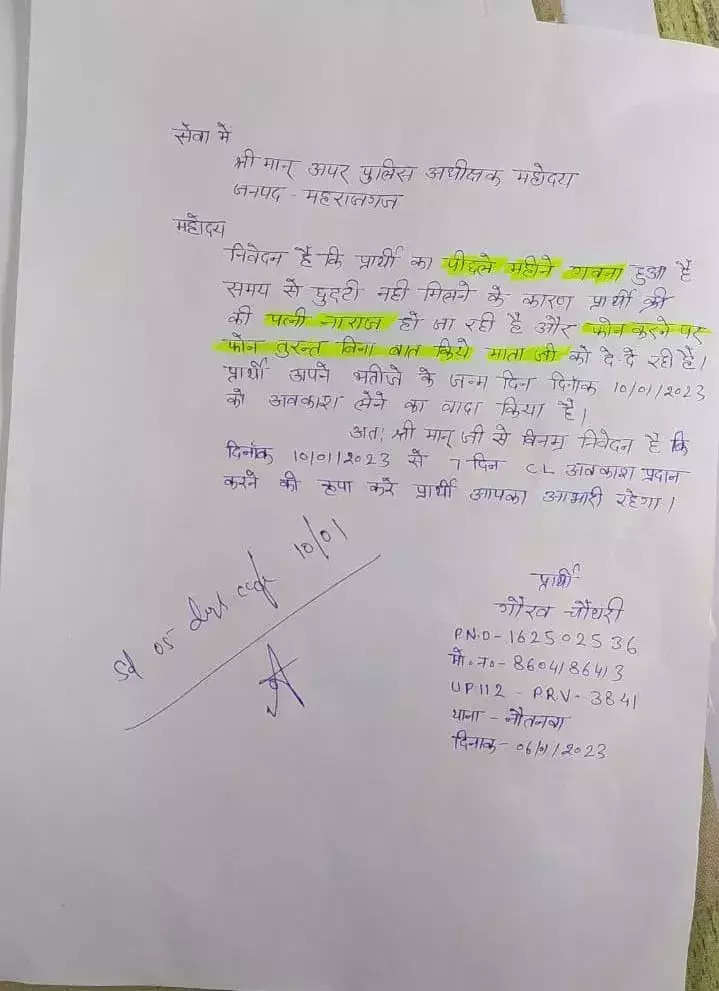 सेवा मे
श्री मान् अपर पुलिस अधीक्षक महोदय
जनपद - महराजगंज
महोदय
निवेदन है कि प्रार्थी का पीछले महीने गवना हुआ है
समय से छुट्टी नही मिलने के कारण प्रार्थी श्री
की पत्नी नाराज हो जा रही है और फोन करने पर
फोन तुरन्त बिना बात किये माता जी को दे दे रही है।
प्रार्थी अपने भतीजे के जन्म दिन दिनांक 10/01/2023
को अवकाश लेने का वादा किया है।
अतः श्री मान् जी से विनम्र निवेदन है कि
दिनांक 10/01/2023 से 7 दिन CL अवकाश प्रदान
करने की कृपा करे प्रार्थी आपका आभारी रहेगा।
प्रार्थी
गौरव चौधरी
P.N.O - 162502536
मो. न. - 8604186413
UP112 - PRV - 3841
थाना - नौतनवा
दिनांक - 06/01/2023
05 10/01